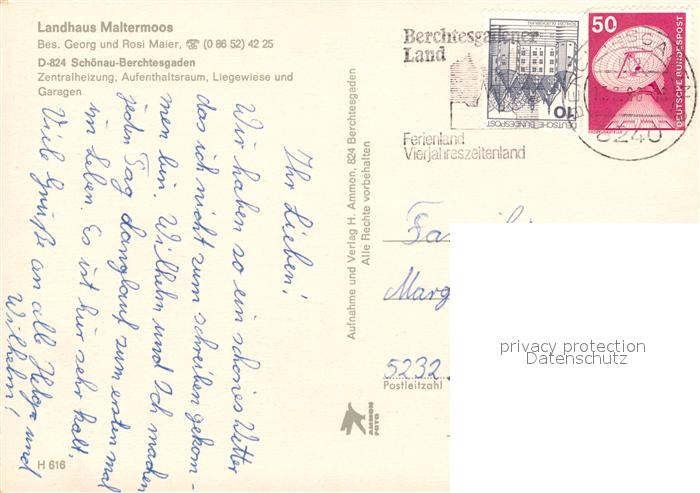 Landhaus Maltermoos
Bes. Georg und Rosi Maier, ☎ (0 86 52) 42 25
D-824 Schönau-Berchtesgaden
Zentralheizung, Aufenthaltsraum, Liegewiese und
Garagen
Ihr Lieben!
Wir haben so ein schönes Wetter
das ich nicht zum schreiben gekom-
men bin. Wilhelm und Ich machen
jeden Tag Langlauf zum ersten mal
im Leben. Es ist hier sehr kalt.
Viele Grüße an alle Helga und
Wilhelm!
H 616
Aufnahme und Verlag H. Ammon, 824 Berchtesgaden
Alle Rechte vorbehalten
AMMON
FOTO
Berchtesgadener
Land
Ferienland
Vierjahreszeitenland
10
DEUTSCHE BUNDESPOST
SCHLOSS GLÜCKSBURG
50
DEUTSCHE BUNDESPOST
ERDFUNKSTELLE
8240
Fa
Marg
5232
Postleitzahl
privacy protection
Datenschutz